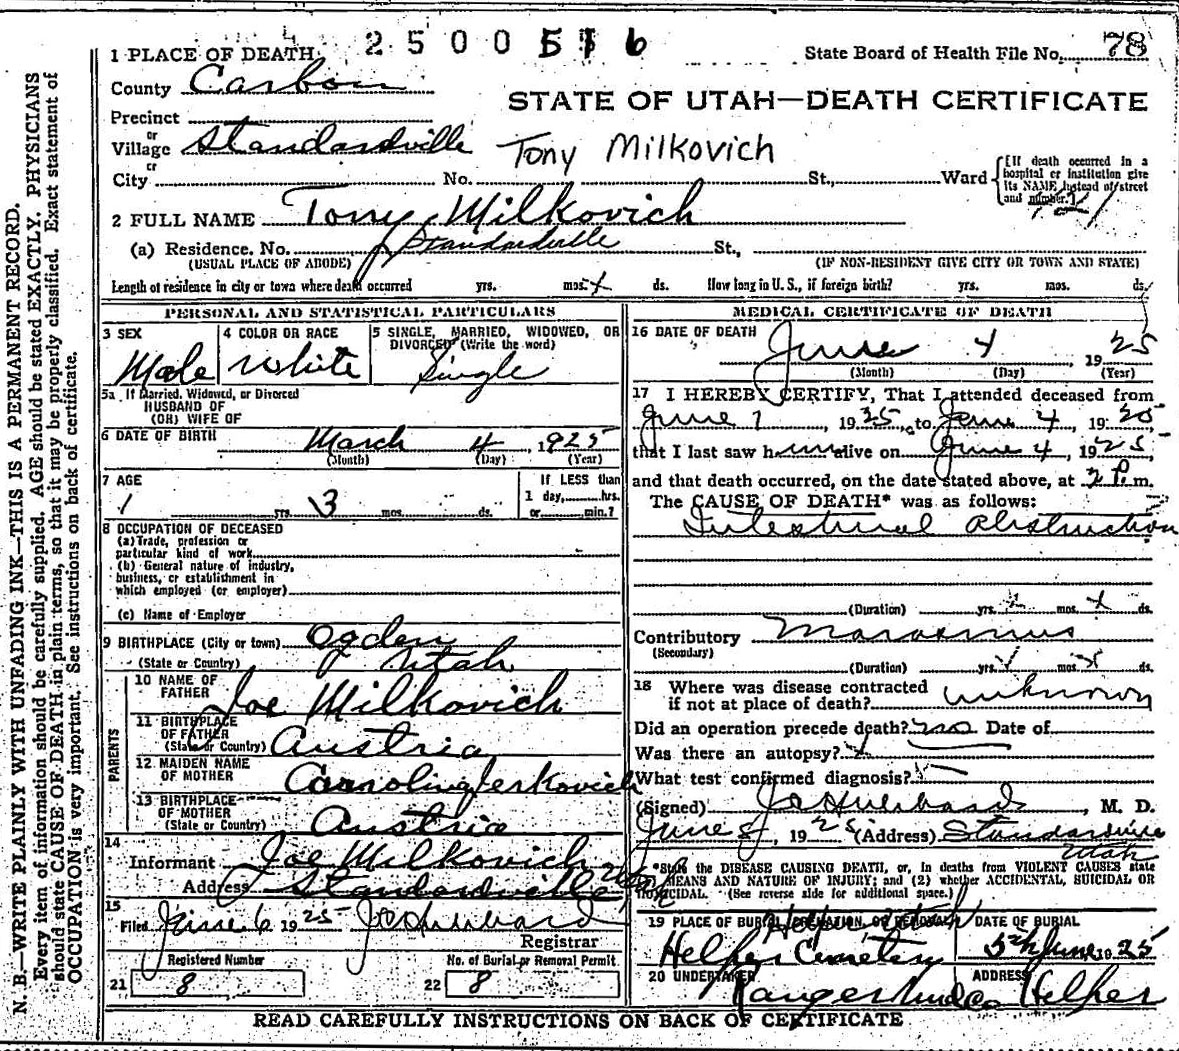 2500516
1 PLACE OF DEATH
State Board of Health File No. 78
County Carbon
STATE OF UTAH—DEATH CERTIFICATE
Precinct
or
Village Standardville
Tony Milkovich
or
City No. St., Ward
(If death occurred in a hospital or institution give its NAME instead of street and number.)
2 FULL NAME Tony Milkovich
(a) Residence. No. Standardville St.,
(USUAL PLACE OF ABODE) (IF NON-RESIDENT GIVE CITY OR TOWN AND STATE)
Length of residence in city or town where death occurred yrs. mos. ds. How long in U. S., if foreign birth? yrs. mos. ds.
PERSONAL AND STATISTICAL PARTICULARS
3 SEX
Male
4 COLOR OR RACE
White
5 SINGLE, MARRIED, WIDOWED, OR
DIVORCED (Write the word)
Single
5a If Married, Widowed, or Divorced
HUSBAND OF
(OR) WIFE OF
6 DATE OF BIRTH March 4, 1925
(Month) (Day) (Year)
7 AGE
yrs. 3 mos. ds.
If LESS than
1 day, hrs.
or min.?
8 OCCUPATION OF DECEASED
(a) Trade, profession or
particular kind of work
(b) General nature of industry,
business, or establishment in
which employed (or employer)
(c) Name of Employer
9 BIRTHPLACE (City or town) Ogden
(State or Country) Utah
PARENTS
10 NAME OF
FATHER Joe Milkovich
11 BIRTHPLACE
OF FATHER
(State or Country) Austria
12 MAIDEN NAME
OF MOTHER
13 BIRTHPLACE
OF MOTHER
(State or Country) Austria
14
Informant Joe Milkovich
Address Standardville
15
Filed June 6 1925 J C Hubbard
Registrar
Registered Number No. of Burial or Removal Permit
21 8 22 8
MEDICAL CERTIFICATE OF DEATH
16 DATE OF DEATH
June 4, 1925
(Month) (Day) (Year)
17 I HEREBY CERTIFY, That I attended deceased from
June 1, 1925, to June 4, 1925
that I last saw him alive on June 4, 1925,
and that death occurred, on the date stated above, at 2 P. m.
The CAUSE OF DEATH* was as follows:
Intestinal Obstruction
(Duration) yrs. mos. ds.
Contributory Marasmus
(Secondary)
(Duration) yrs. mos. ds.
18 Where was disease contracted
if not at place of death? unknown
Did an operation precede death? no Date of
Was there an autopsy?
What test confirmed diagnosis?
(Signed) J C Hubbard, M. D.
June, 1925 (Address) Standardville
Utah
*State the DISEASE CAUSING DEATH, or, in deaths from VIOLENT CAUSES state
MEANS AND NATURE OF INJURY; and (2) whether ACCIDENTAL, SUICIDAL OR
HOMICIDAL. (See reverse side for additional space.)
19 PLACE OF BURIAL, CREMATION, OR REMOVAL DATE OF BURIAL
Helper Cemetery 5th June 1925
20 UNDERTAKER ADDRESS
Helper
READ CAREFULLY INSTRUCTIONS ON BACK OF CERTIFICATE
N. B.—WRITE PLAINLY WITH UNFADING INK—THIS IS A PERMANENT RECORD.
Every item of information should be carefully supplied. AGE should be stated EXACTLY. PHYSICIANS
should state CAUSE OF DEATH in plain terms, so that it may be properly classified. Exact statement of
OCCUPATION is very important. See instructions on back of certificate.